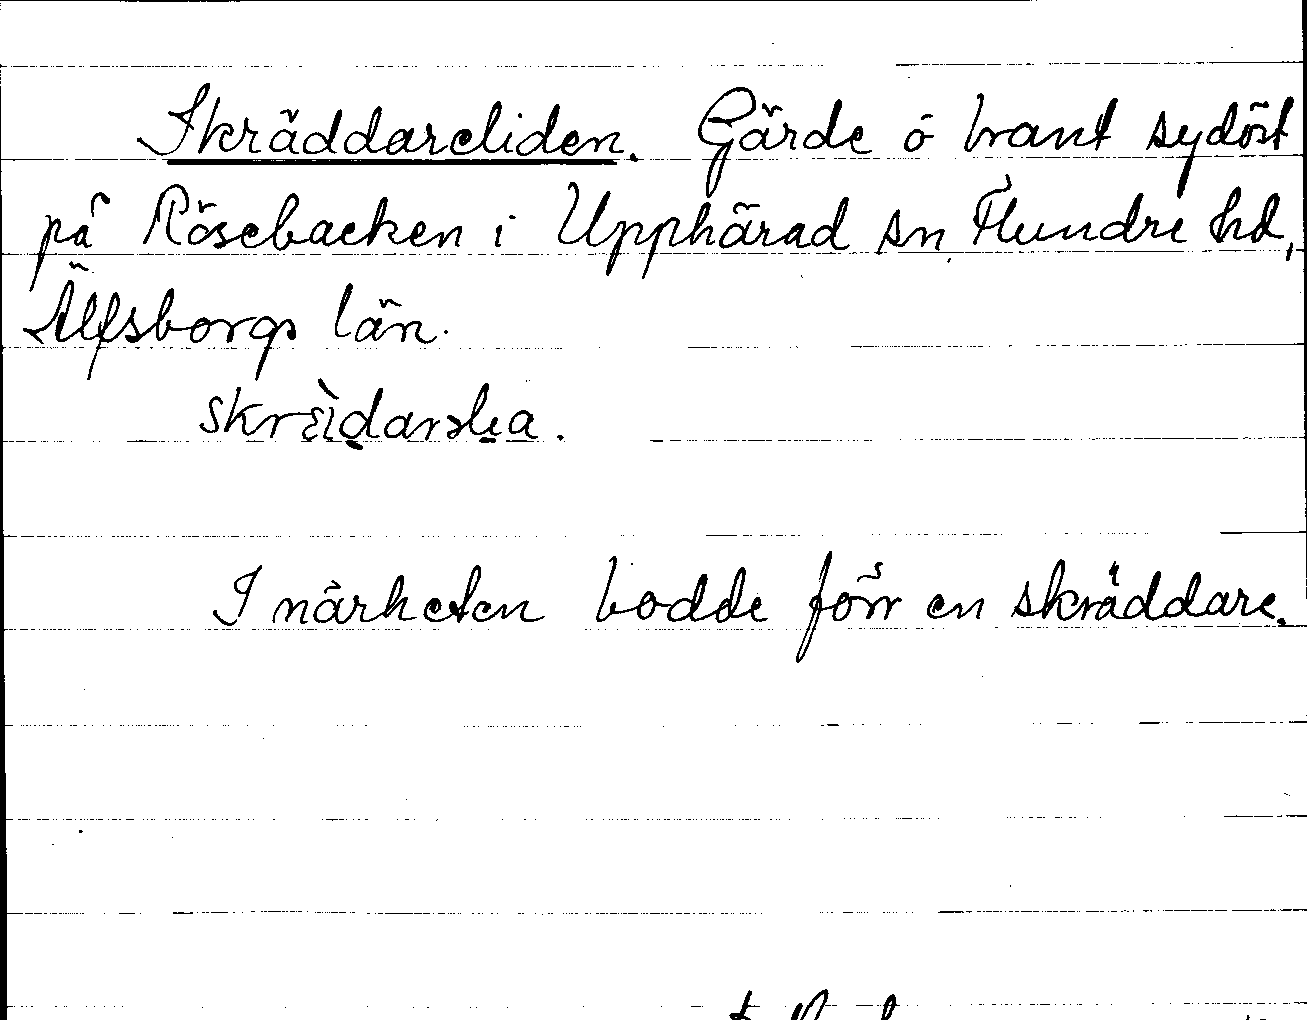 Skräddareliden. Gärde o brant sydöst
på Rösebacken i Upphärad sn, Flundre hd,
Älfsborgs län.
I närheten bodde förr en skräddare.